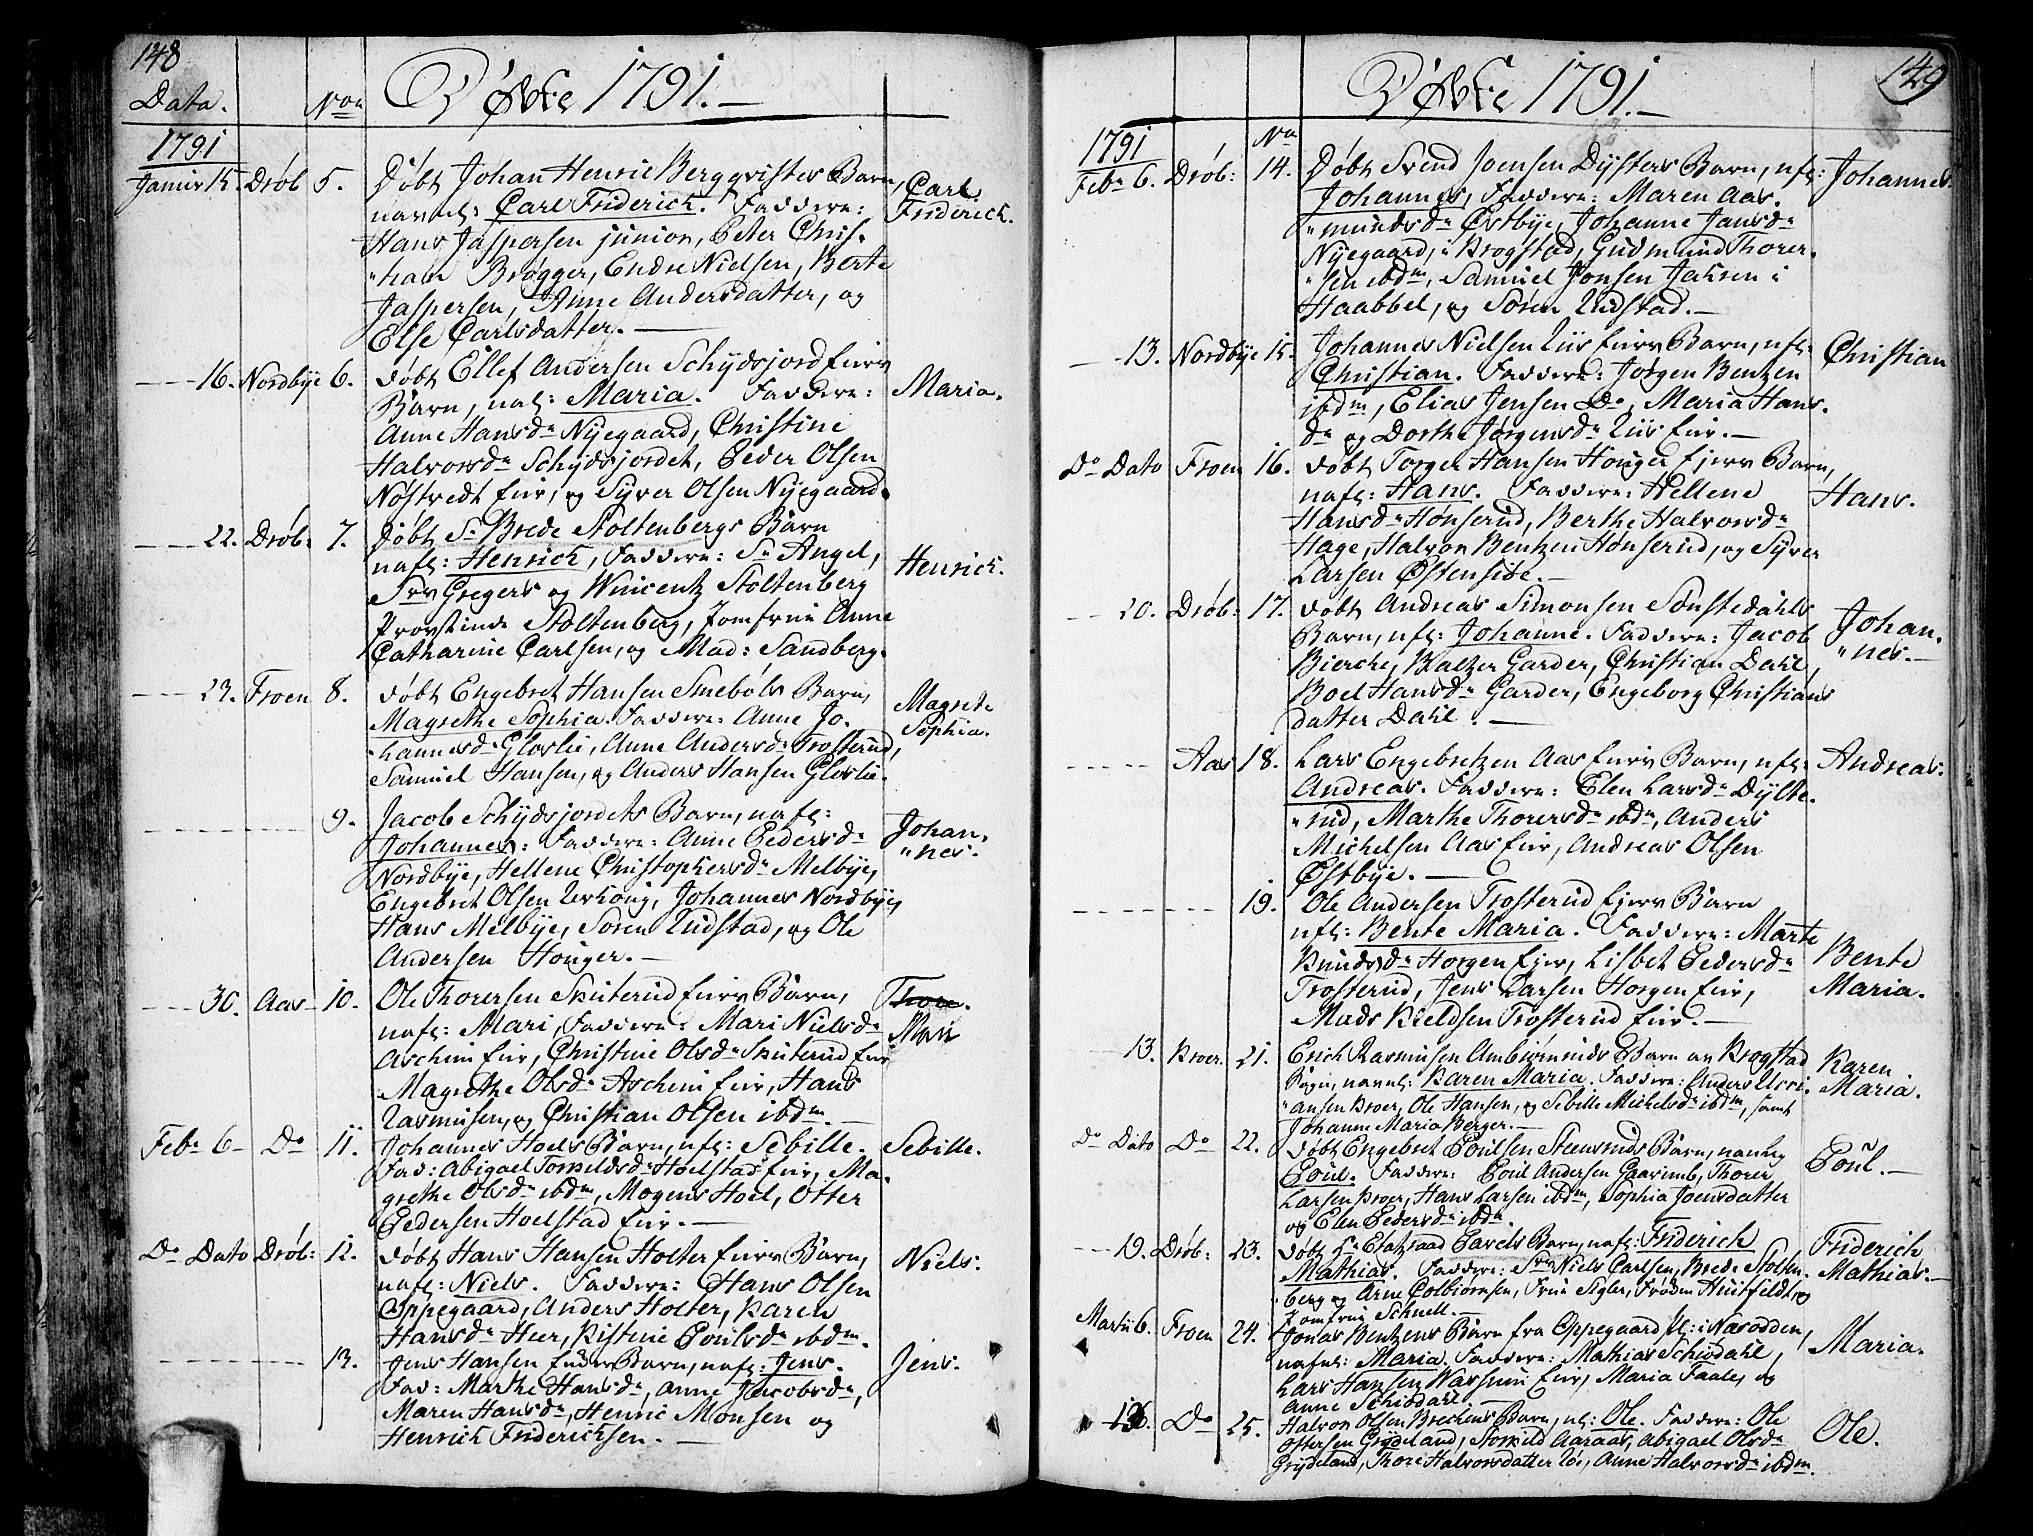 148
Døbte 1791.
Data. Non
1791
Januir 15. Drøb 5. Døbt Johan Henric Bergqvistes Barn, Carl
navnl: Carl Friderich. Faddere: Friderich.
Hans Jaspersen junior, Peter Chris-
"ham Brøgger, Endre Nielsen, Berte
Jaspersen, Anne Andersdatter, og
Else Carlsdatter.
16. Nordbye 6. døbt Ellef Andersen Schydsjordeiers
Barn, nal: Maria. Faddere: Maria.
Anne Hansdr Nyegaard, Christine
Halvorsdr Schydsjordet, Peder Olsen
Nøstvedt eier, og Syver Olsen Nyegaard.
22. Drøb: 7. Døbt Sr Brede Stoltenbergs Barn
nafl: Henrich, Faddere: Sr Angel, Henrich.
Srr Gregers og Wincentz Stoltenberg
Provstinde Stoltenberg, Jomfrue Anne
Catharine Carlsen, og Mad: Sandberg.
23. Froen 8. døbt Engebret Hansen Smebøls Barn, Magrete
Magrethe Sophia. Faddere: Anne Jo- Sophia.
"hannesdr Gloslie, Anne Andersdr Trosterud,
Samuel Hansen, og Anders Hansen Gloslie.
9. Jacob Schydsjordets Barn, nafl:
Johannes: Faddere: Anne Pedersdr Johan-
Nordbye, Hellene Christophersdr Melbye, "nes.
Engebret Olsen Verkøng, Johannes Nordbye,
Hans Melbye, Søren Udstad, og Ole
Andersen Houger.
30. Aas 10. Ole Thorersen Skuterud eiers Barn, Thore.
nafl: Mari, Faddere: Mari Nielsdr Mari
Aschim eier, Christine Olsdr Skuterud eier
Magrethe Olsdr Aschim eier, Hans
Rasmusen, og Christian Olsen ibdm.
Febr 6 Do 11. Johannes Hoels Barn, nfl: Sebille. Sebille.
Fad: Abigael Tomeldsdr Hoelstad eier, Ma-
grethe Olsdr ibdm, Mogens Hoel, Otter
Pedersen Hoelstad eier.
Do Dato Drøb: 12. døbt Hans Hansen Holter eiers Barn,
nafl: Niels. Faddere: Hans Olsen Niels.
Oppegaard, Anders Holter, Karen
Hansdr Heer, Kistine Poulsdr ibdm.
13. Jens Hansen Barn, nafl: Jens. Jens.
Fad: Marthe Hansdr, Anne Jacobsdr,
Maren Hansdr, Henric Monsen og
Henrich Fridericksen.
149
Døbte 1791.
1791 No
Febr 6. Drøb: 14. Døbt Svend Joensen Dysters Barn, nfl: Johannes.
Johannes, Faddere: Maren Aas-
"mundsdr Østbye, Johanne Jansdr
Nyegaard, i Krogstad, Gudmund Thorer-
"sen ibdm, Samuel Jonsen Jahren i
Haabbel, og Søren Udstad.
13. Nordbye 15. Johannes Nielsen Uus eiers Barn, nfl: Christian
Christian. Faddere: Jørgen Bentzen
ibdm, Elias Jensen Do, Maria Hans-
dr og Dorthe Jørgensdr Uus eier.
Do Dato Froen 16. døbt Torger Hansen Houger ejers Barn,
nafl: Hans. Faddere: Hellene Hans.
Hansdr Hønserud, Berthe Halvorsdr
Hage, Halvor Bentzen Hønserud, og Syver
Larsen Østenside.
20. Drøb: 17. døbt Andreas Simonsen Sønstedahls Johan-
Barn, nfl: Johanne. Faddere: Jacob "nes.
Bierche, Baltzer Garder, Christian Dahl,
Boel Hansdr Garder, Engeborg Christians
datter Dahl.
Aas 18. Lars Engebretzen Aas eiers Barn, nfl: Andreas.
Andreas. Faddere: Elen Larsdr Dylte-
"rud, Marthe Thorersdr ibdm, Anders
Michelsen Aas eier, Andreas Olsen
Østbye.
19. Ole Andersen Trosterud ejers Barn
nfl: Bente Maria. Faddere: Marte Bente
Knudsdr Horgen ejer, Lisbet Pedersdr Maria.
Trosterud, Jens Larsen Horgen eier,
Mads Kieldsen Trosterud eier.
13. Kroer. 21. Erich Rasmusen Ambiørnruds Barn av Krogstad Karen
Sogn, navnl: Karen Maria. Faddere: Anders Chri- Maria.
"ansen Kroer, Ole Hansen, og Sebille Michelsdr ibdm, samt
Johanne Maria Berger.
Do Dato Do 22. døbt Engebret Poulsen Steensruds Barn, navnlig
Poul. Faddere: Poul Andersen Gaarimb, Thorer Poul.
Larsen Kroer, Hans Larsen ibdm, Sophia Joensdatter
og Elen Pedersdr ibdm.
19. Drøb: 23. døbt Hr Etatzraad Pavels Barn, nafl: Friderich Friderich
Mathias. Faddere: Srr Niels Carlsen, Brede Stolten- Mathias.
"berg og Arne Colbiørnsen, Frue Sigler, Frøken Huitfeldt, og
Jomfrue Schnell.
Martii 6. Froen 24. Jonas Bentzens Barn fra Oppegaard i Næsodden,
nafnl: Maria. Faddere: Mathias Schiødahl, Maria.
Lars Hansen Wassum eier, Maria Faale, og
Anne Schiødahl.
Do 25. Halvor Olsen Brechens Barn, nl: Ole. Faddere: Ole Ole.
Ostersen Grydeland, Stomild Aaraas, Abigael Olsdr
Grydeland, Thore Halvorsdatter Løi, Anne Halvorsdr ibdm.